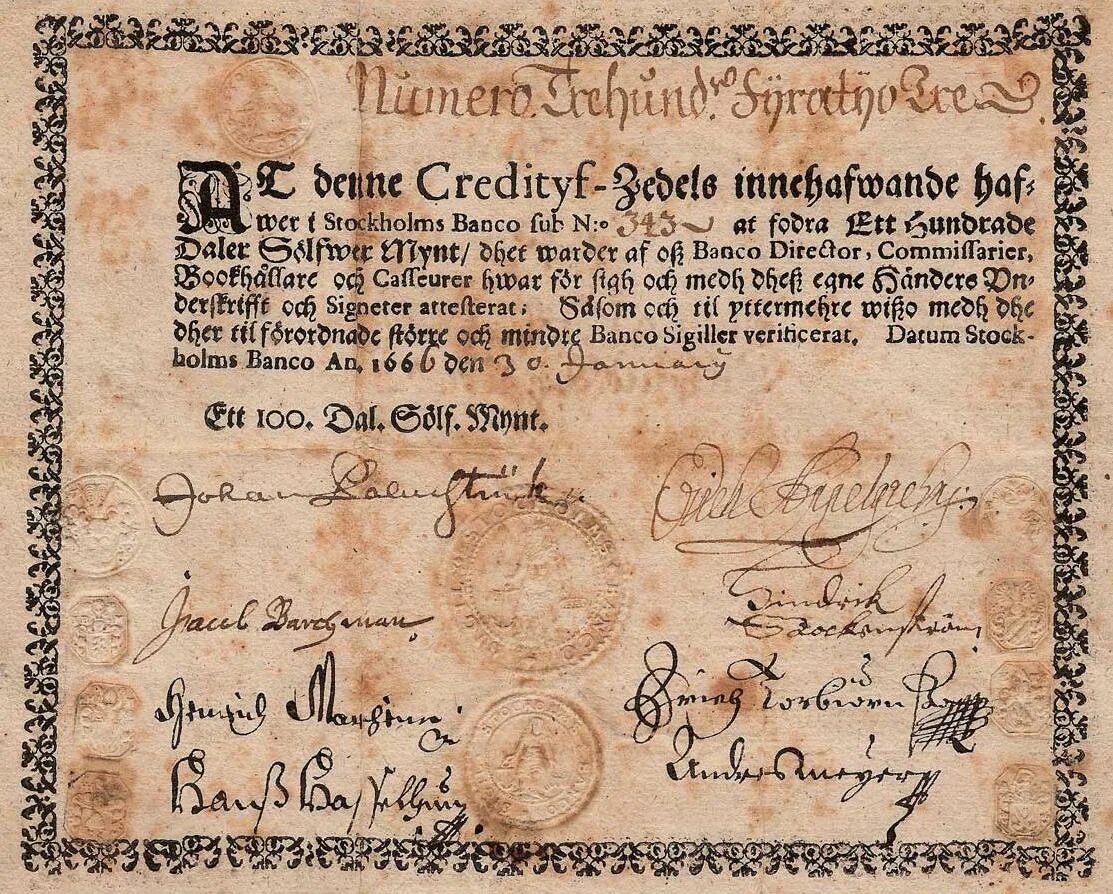 Numero. Trehundro. Fÿratÿo Tre
AT denne Credityf-Zedels innehafwande haf⸗
wer i Stockholms Banco ſub N:o 343 at fodra Ett Hundrade
Daler Sölfwer Mynt/ dhet warder af oſz Banco Director, Commiſſarier,
Bookhållare och Caſſeurer hwar för ſigh och medh dheſz egne Händers Vn⸗
derſkrifft och Signeter atteſterat; Såſom och til yttermehre wiſzo medh dhe
dher til förordnade ſtörre och mindre Banco Sigiller verificerat. Datum Stock-
holms Banco An. 1666 den 30. January
Ett 100. Dal. Sölf. Mynt.
Johan Palmstruck
Jacob Barchman
Hindrik
Stockenström
Henrich
Erich Torbiörn
Andres meyer
Hanß